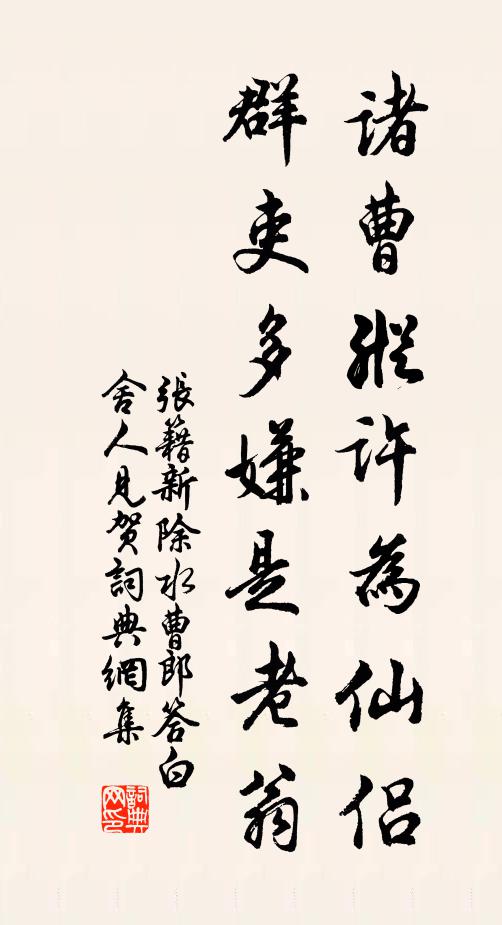 諸曹縱許為仙侶
群吏多嫌是老翁
張籍新除水曹郎答白
舍人見賀詞典網集
詞典
网印